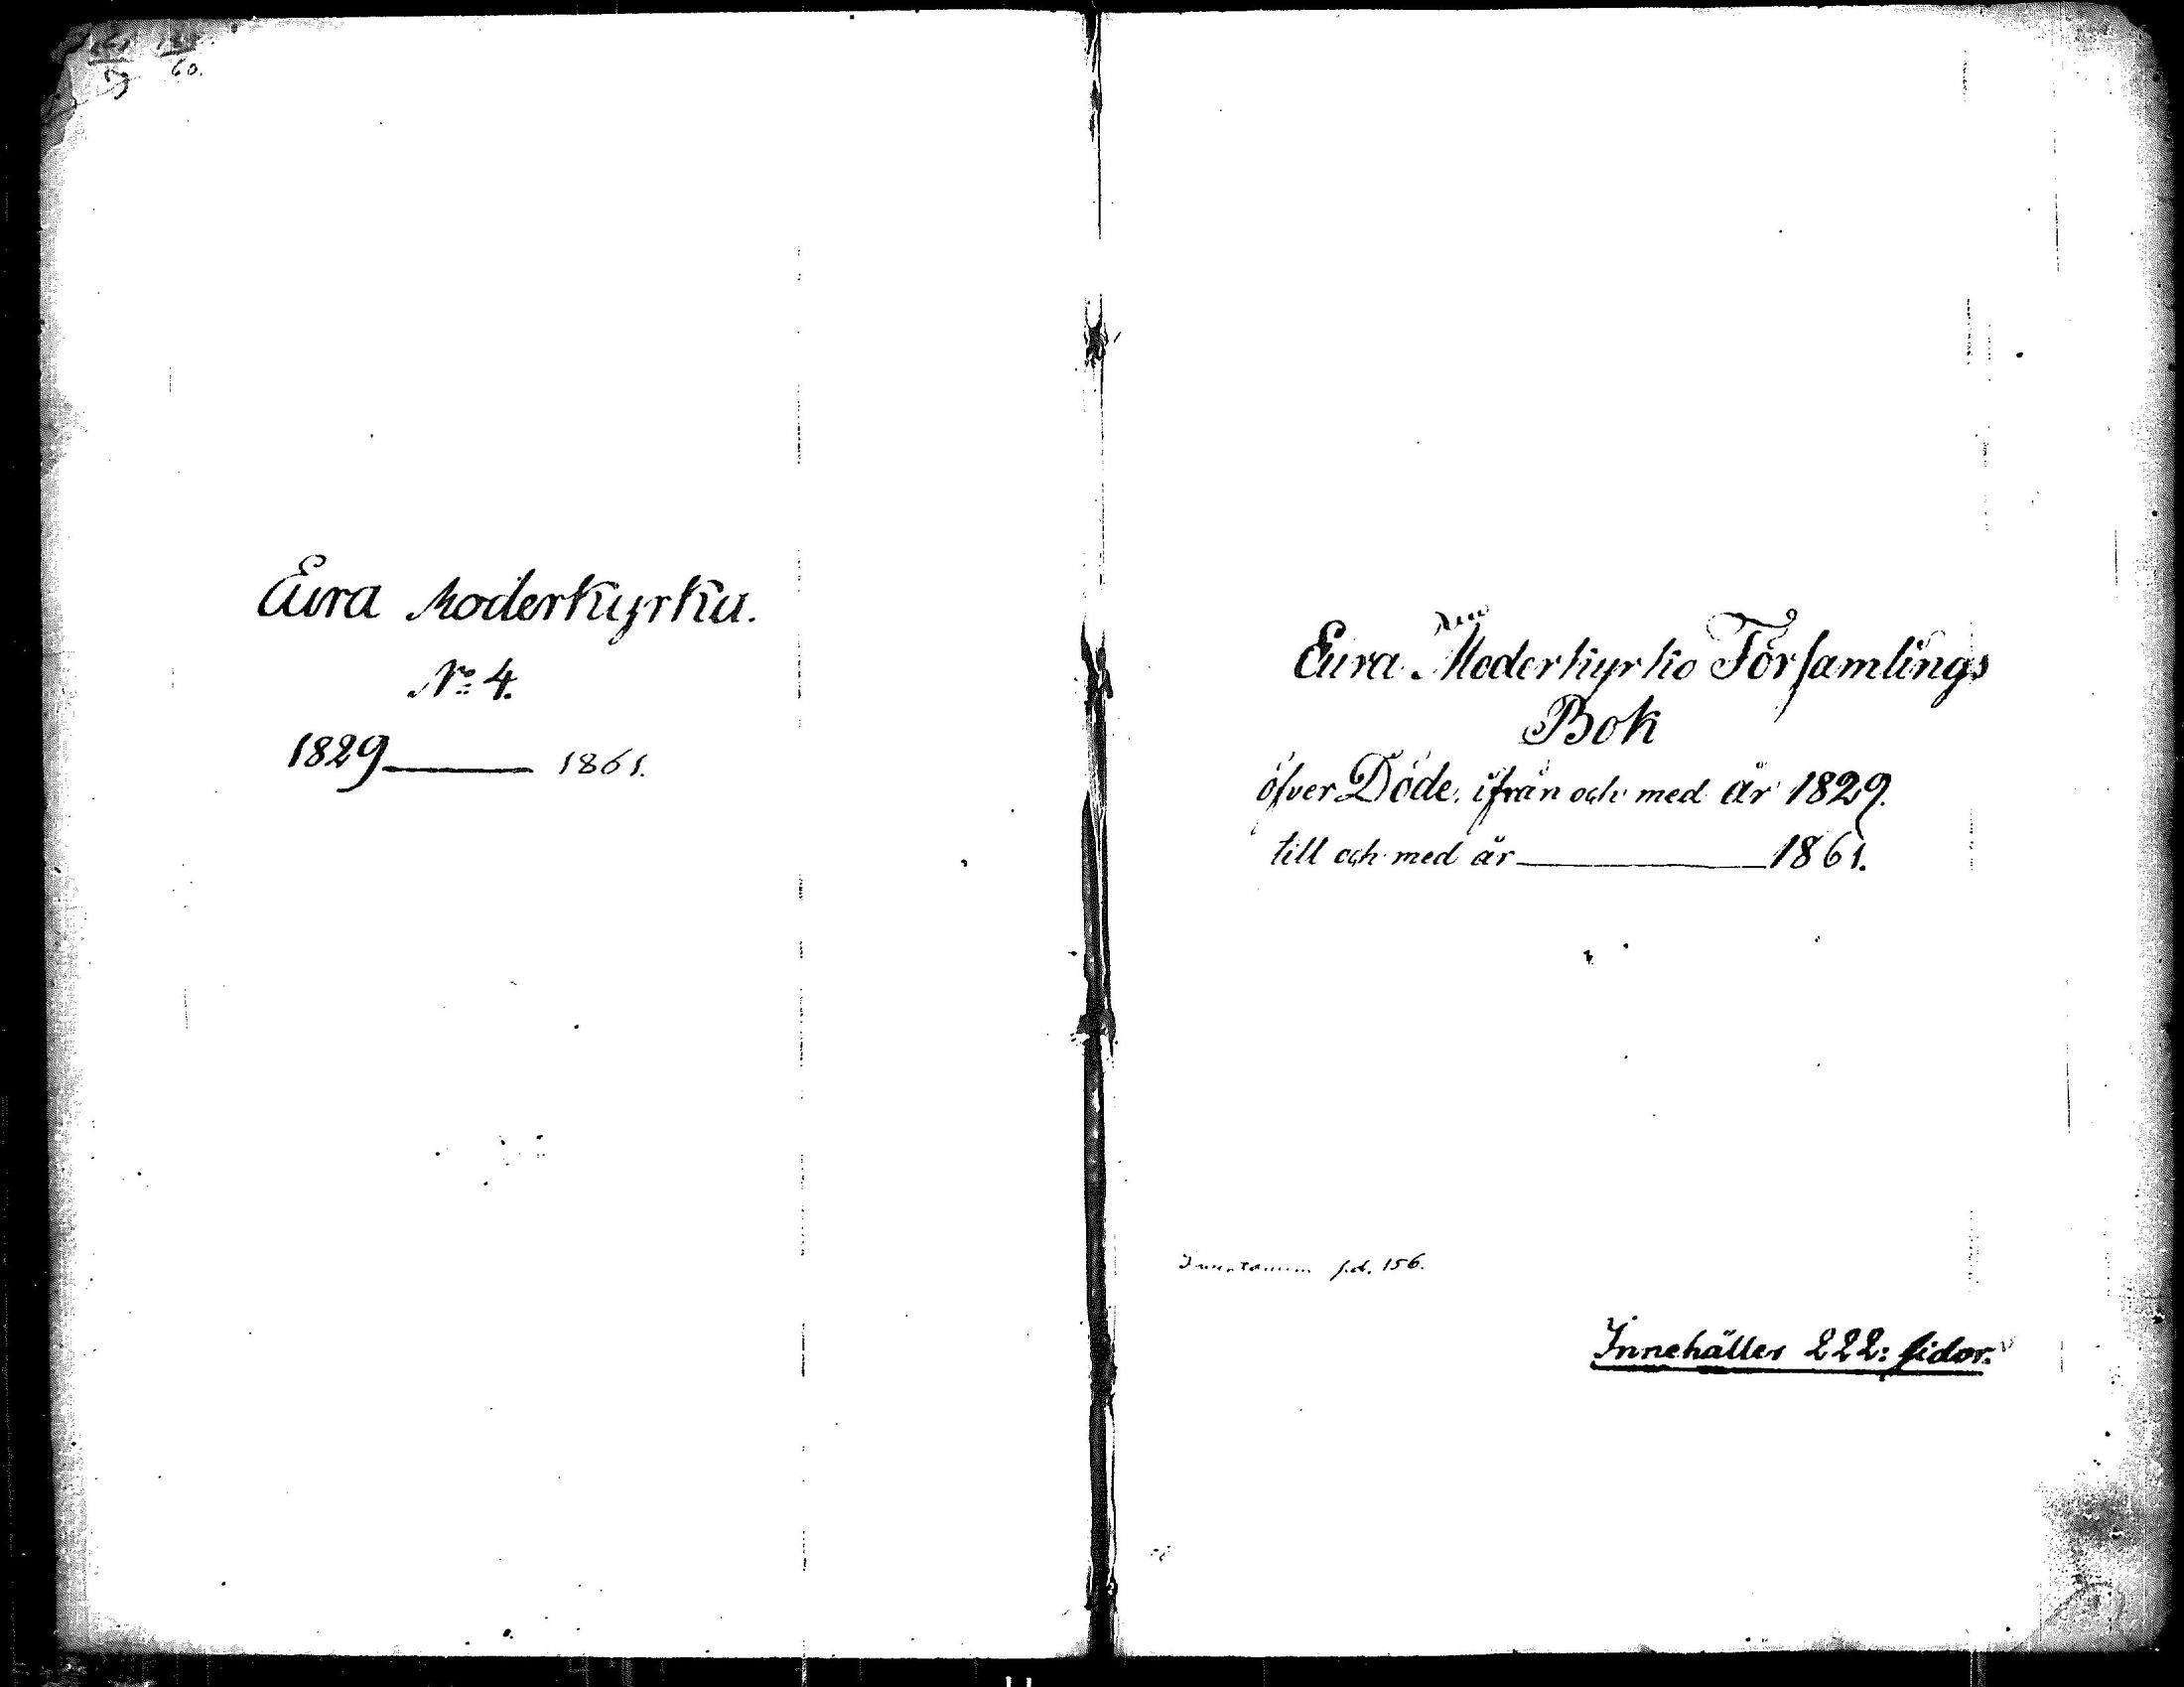 60.
Eura Moderkyrka.
No 4.
1829 — 1861.
Eura Moderkyrko Församlings
Bok
öfver Döde, ifrån och med år 1829.
till och med år — 1861.
s.d. 156.
Innehåller 222: sidor.